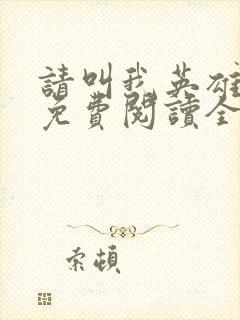 請叫我英雄
免費閱讀全
索頓